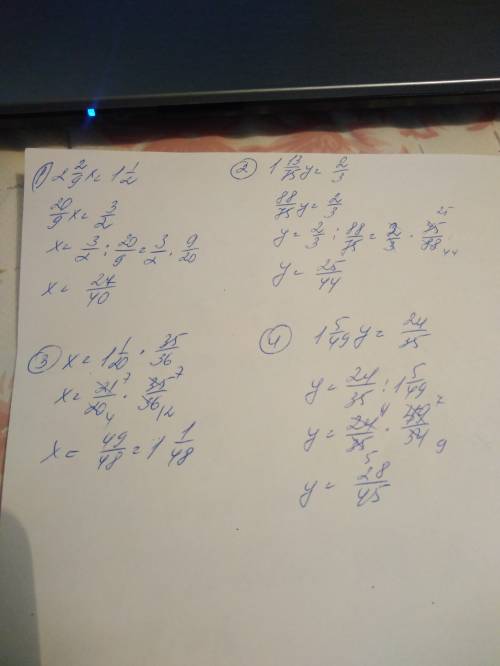 ① 2 2/9 x = 1 1/2
20/9 x = 3/2
x = 3/2 : 20/9 = 3/2 · 9/20
x = 27/40
② 1 13/75 y = 2/3
88/75 y = 2/3
y = 2/3 : 88/75 = 2/3 · 75/88 25 44
y = 25/44
③ x = 1 1/20 · 35/36
x = 21/20 · 35/36 7 4 7 12
x = 49/48 = 1 1/48
④ 1 5/49 y = 24/35
y = 24/35 : 1 5/49
y = 24/35 · 49/54 4 5 7 9
y = 28/45